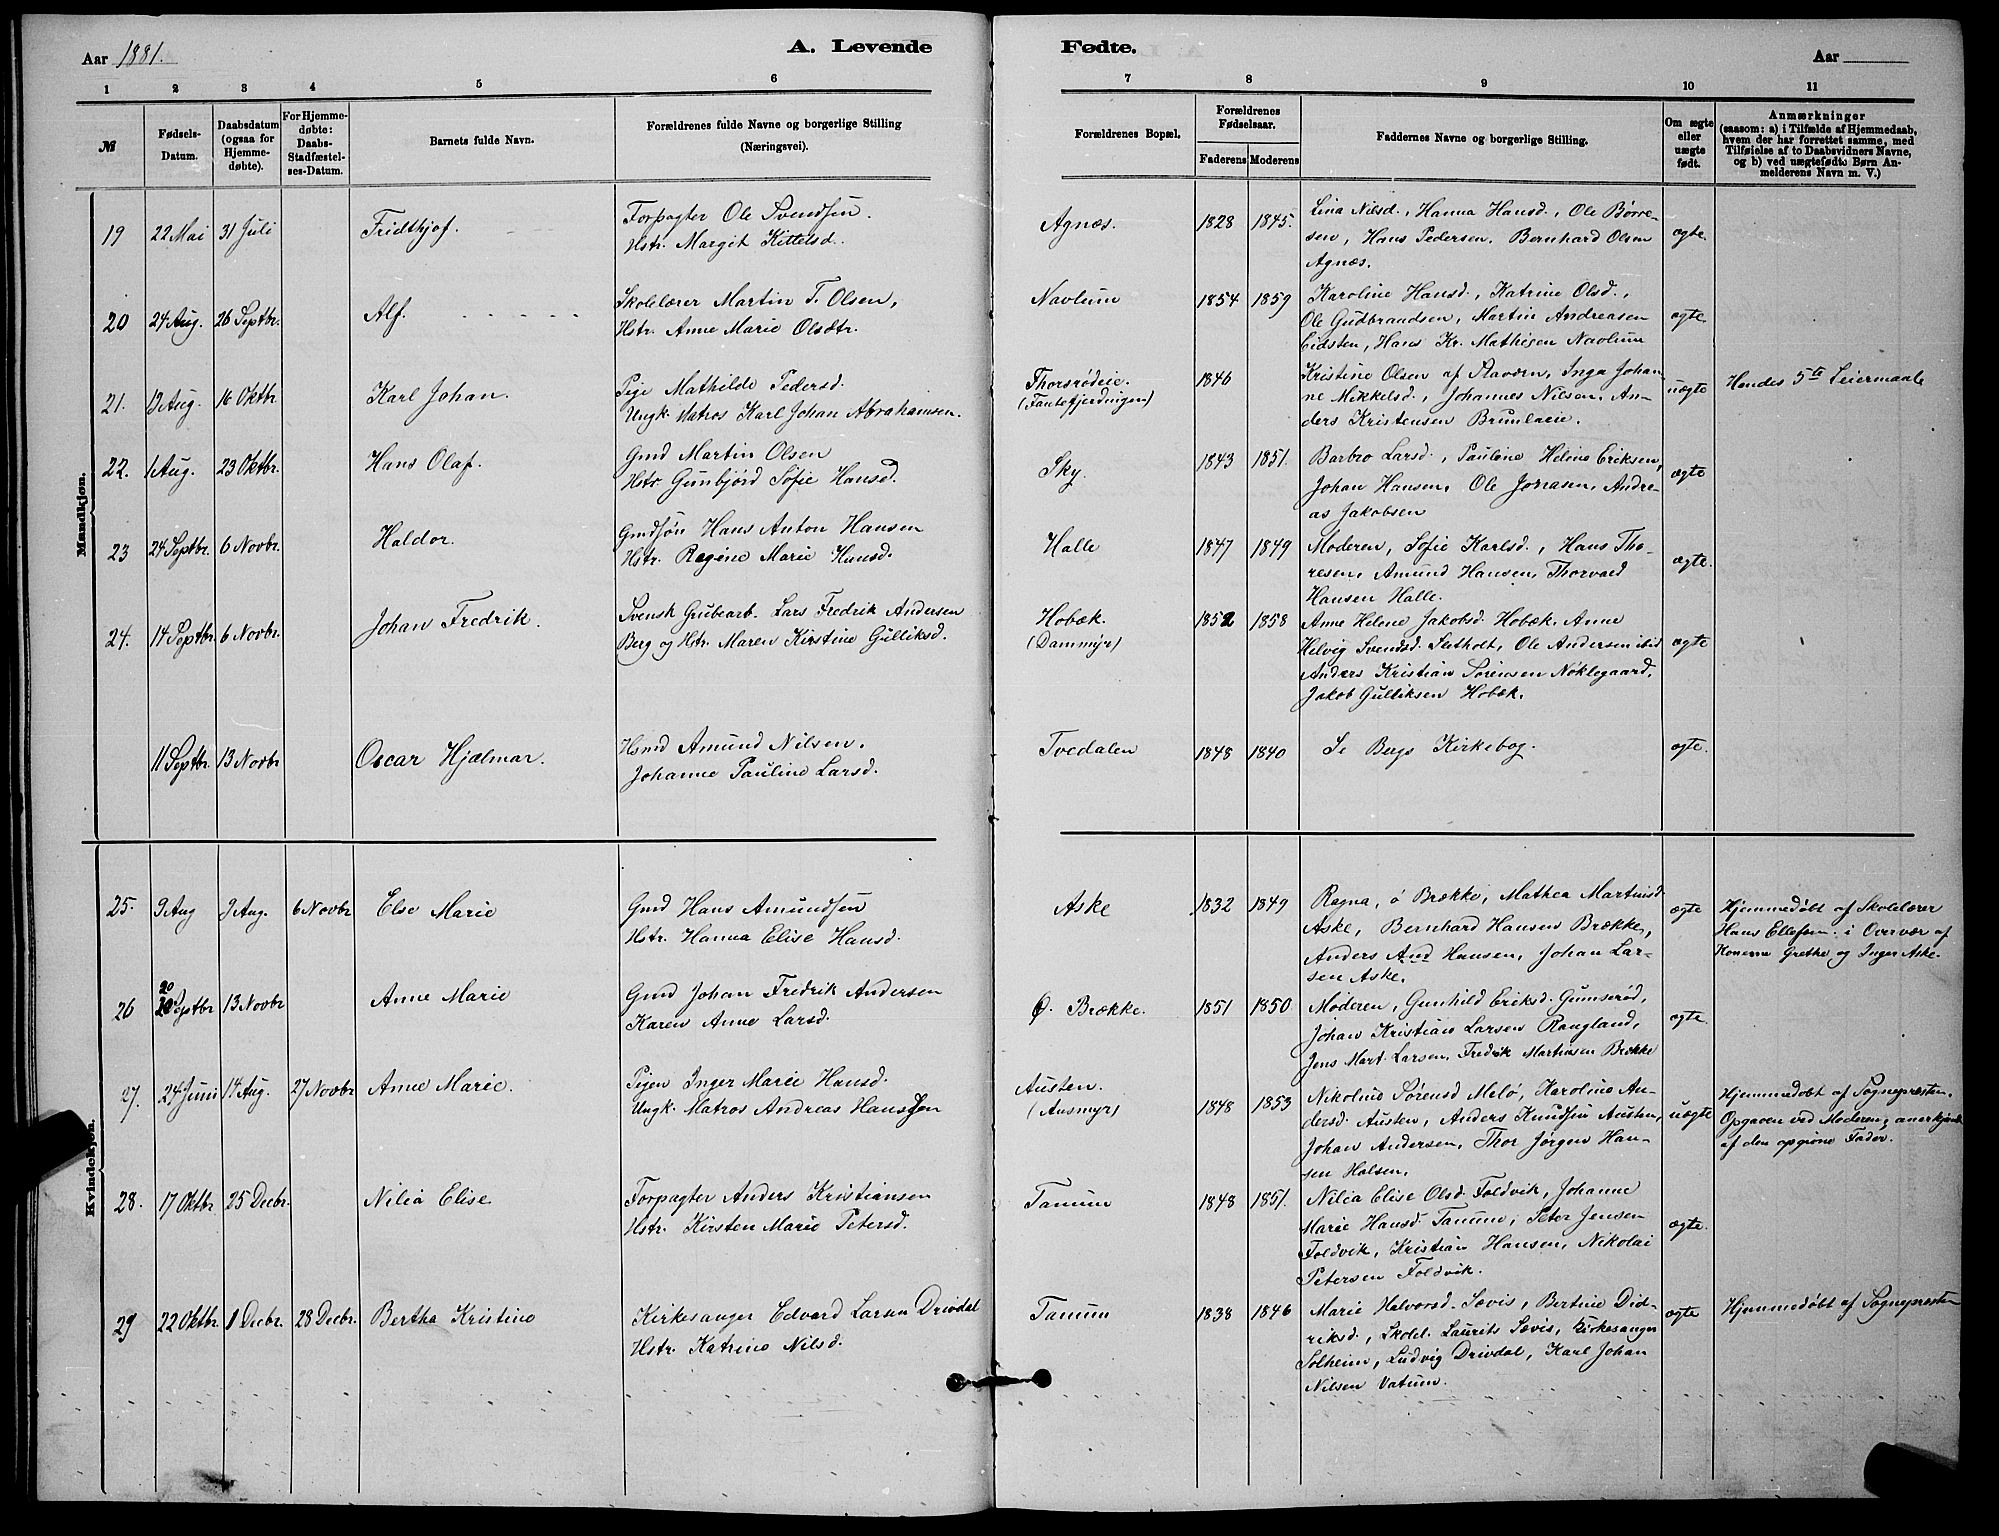 Aar 1881.
A. Levende
Fødte.
Aar
1 2 3 4 5 6 7 8 9 10 11
№
Fødsels-
Datum.
Daabsdatum
(ogsaa for
Hjemme-
døbte).
For Hjemme-
døbte:
Daabs-
Stadfæstel-
ses-Datum.
Barnets fulde Navn.
Forældrenes fulde Navne og borgerlige Stilling
(Næringsvei).
Forældrenes Bopæl.
Forældrenes
Fødselsaar.
Faderens Moderens
Faddernes Navne og borgerlige Stilling.
Om ægte
eller
uægte
født.
Anmærkninger
(saasom: a) i Tilfælde af Hjemmedaab,
hvem der har forrettet samme, med
Tilføielse af to Daabsvidners Navne,
og b) ved uægtefødte Børn An-
melderens Navn m. V.)
Mandkjøn.
19 22 Mai 31 Juli Fridthjof.
Forpagter Ole Svendsen.
Hstr. Margit Kittelsd.
Agnæs. 1828 1845.
Lina Nilsd., Hanna Hansd., Ole Børre-
sen, Hans Pedersen. Bernhard Olsen
Agnæs.
ægte.
20 24 Aug. 26 Septbr. Alf.
Skolelærer Martin T. Olsen,
Hstr. Anne Marie Olsdtr.
Navlum 1854 1859
Karoline Hansd., Katrine Olsd.,
Ole Gudbrandsen, Martin Andreasen
Eidsten, Hans Kr. Mathisen Navlum
ægte.
21. 13 Aug. 16 Oktbr Karl Johan.
Pige Mathilde Pedersd.
Ungk. Matros Karl Johan Abrahamsen.
Thorsrødeie.
(Fantefjerdingen)
1846
Kristine Olsen af Stavern, Inga Johan-
ne Mikkelsd., Johannes Nilsen, An-
ders Kristensen Brunlaeie.
uægte
Hendes 5te Leiermaale
22. 1 Aug. 23 Oktbr. Hans Olaf.
Gmd Martin Olsen
Hstr Gunbjørd Sofie Hansd.
Sky. 1843 1851.
Barbro Larsd., Pauline Helene Eriksen,
Johan Hansen, Ole Jonasen, Andre-
as Jakobsen
ægte
23 24 Septbr. 6 Novbr. Haldor.
Gmdsøn Hans Anton Hansen
Hstr. Regine Marie Hansd.
Halle 1847 1849
Moderen, Sofie Karlsd., Hans Tho-
resen, Amund Hansen, Thorvald
Hansen Halle.
ægte.
24. 14 Septbr. 6 Novbr. Johan Fredrik.
Svensk Grubearb. Lars Fredrik Andersen
Berg og Hstr. Maren Kirstine Gulliksd.
Hobæk.
(Dammyr)
1852 1858
Anne Helene Jakobsd. Hobæk. Anne
Helvig Svendsd. Sletholt, Ole Andersen ibid
Anders Kristian Sørensen Nøklegaard.
Jakob Gulliksen Hobæk.
ægte
11 Septbr. 13 Novbr Oscar Hjalmar.
Hsmd Amund Nilsen.
Johanne Pauline Larsd.
Tvedalen 1848 1840 Se Bergs Kirkebog. ægte.
Kvindekjøn.
25. 9 Aug 9 Aug. 6 Novbr Else Marie
Gmd Hans Amundsen
Hstr. Hanna Elise Hansd.
Aske 1832 1849
Ragna, ø Brække, Mathea Martinsd.
Aske, Bernhard Hansen Brække,
Anders And Hansen, Johan Lar-
sen Aske.
ægte
Hjemmedøbt af Skolelærer
Hans Ellefsen. i Overvær af
Konerne Grethe og Inger Aske.
26 20 Septbr 13 Novbr Anne Marie
Gmd Johan Fredrik Andersen
Karen Anne Larsd.
Ø. Brække. 1851 1850
Moderen, Gunhild Eriksd. Gumserød,
Johan Kristian Larsen Rangland,
Jens Mart. Larsen, Fredrik Martinsen Brække
ægte.
27. 24 Juni 14 Aug. 27 Novbr Anne Marie.
Pigen Inger Marie Hansd.
Ungk. Matros Andreas Hansen
Austen.
(Ausmyr)
1848 1853
Nikoline Sørensd Melø, Karoline An-
dersd. Austen, Anders Knudsen Austen,
Johan Andersen, Thor Jørgen Han-
sen Holsen.
uægte
Hjemmedøbt af Sognepræsten.
Opgaven ved Moderen; anerkjendt
af den opgivne Fader.
28. 17 Oktbr. 25 Decbr. Nilia Elise
Forpagter Anders Kristiansen
Hstr. Kirsten Marie Petersd.
Tanum 1848 1851.
Nilia Elise Olsd. Foldvik, Johanne
Marie Hansd Tanum, Peter Jensen
Foldvik, Kristian Hansen, Nikolai
Petersen Foldvik.
ægte.
29 22 Oktbr. 1 Decbr. 28 Decbr. Bertha Kristine
Kirkesanger Edvard Larsen Drivdal
Hstr. Katrine Nilsd.
Tanum 1838 1846
Marie Halvorsd. Sævis, Bertine Did-
riksd., Skolel. Laurits Sævis, Kirkesanger
Solheim, Ludvig Drivdal, Karl Johan
Nilsen Vatum.
ægte
Hjemmedøbt af Sognepræsten